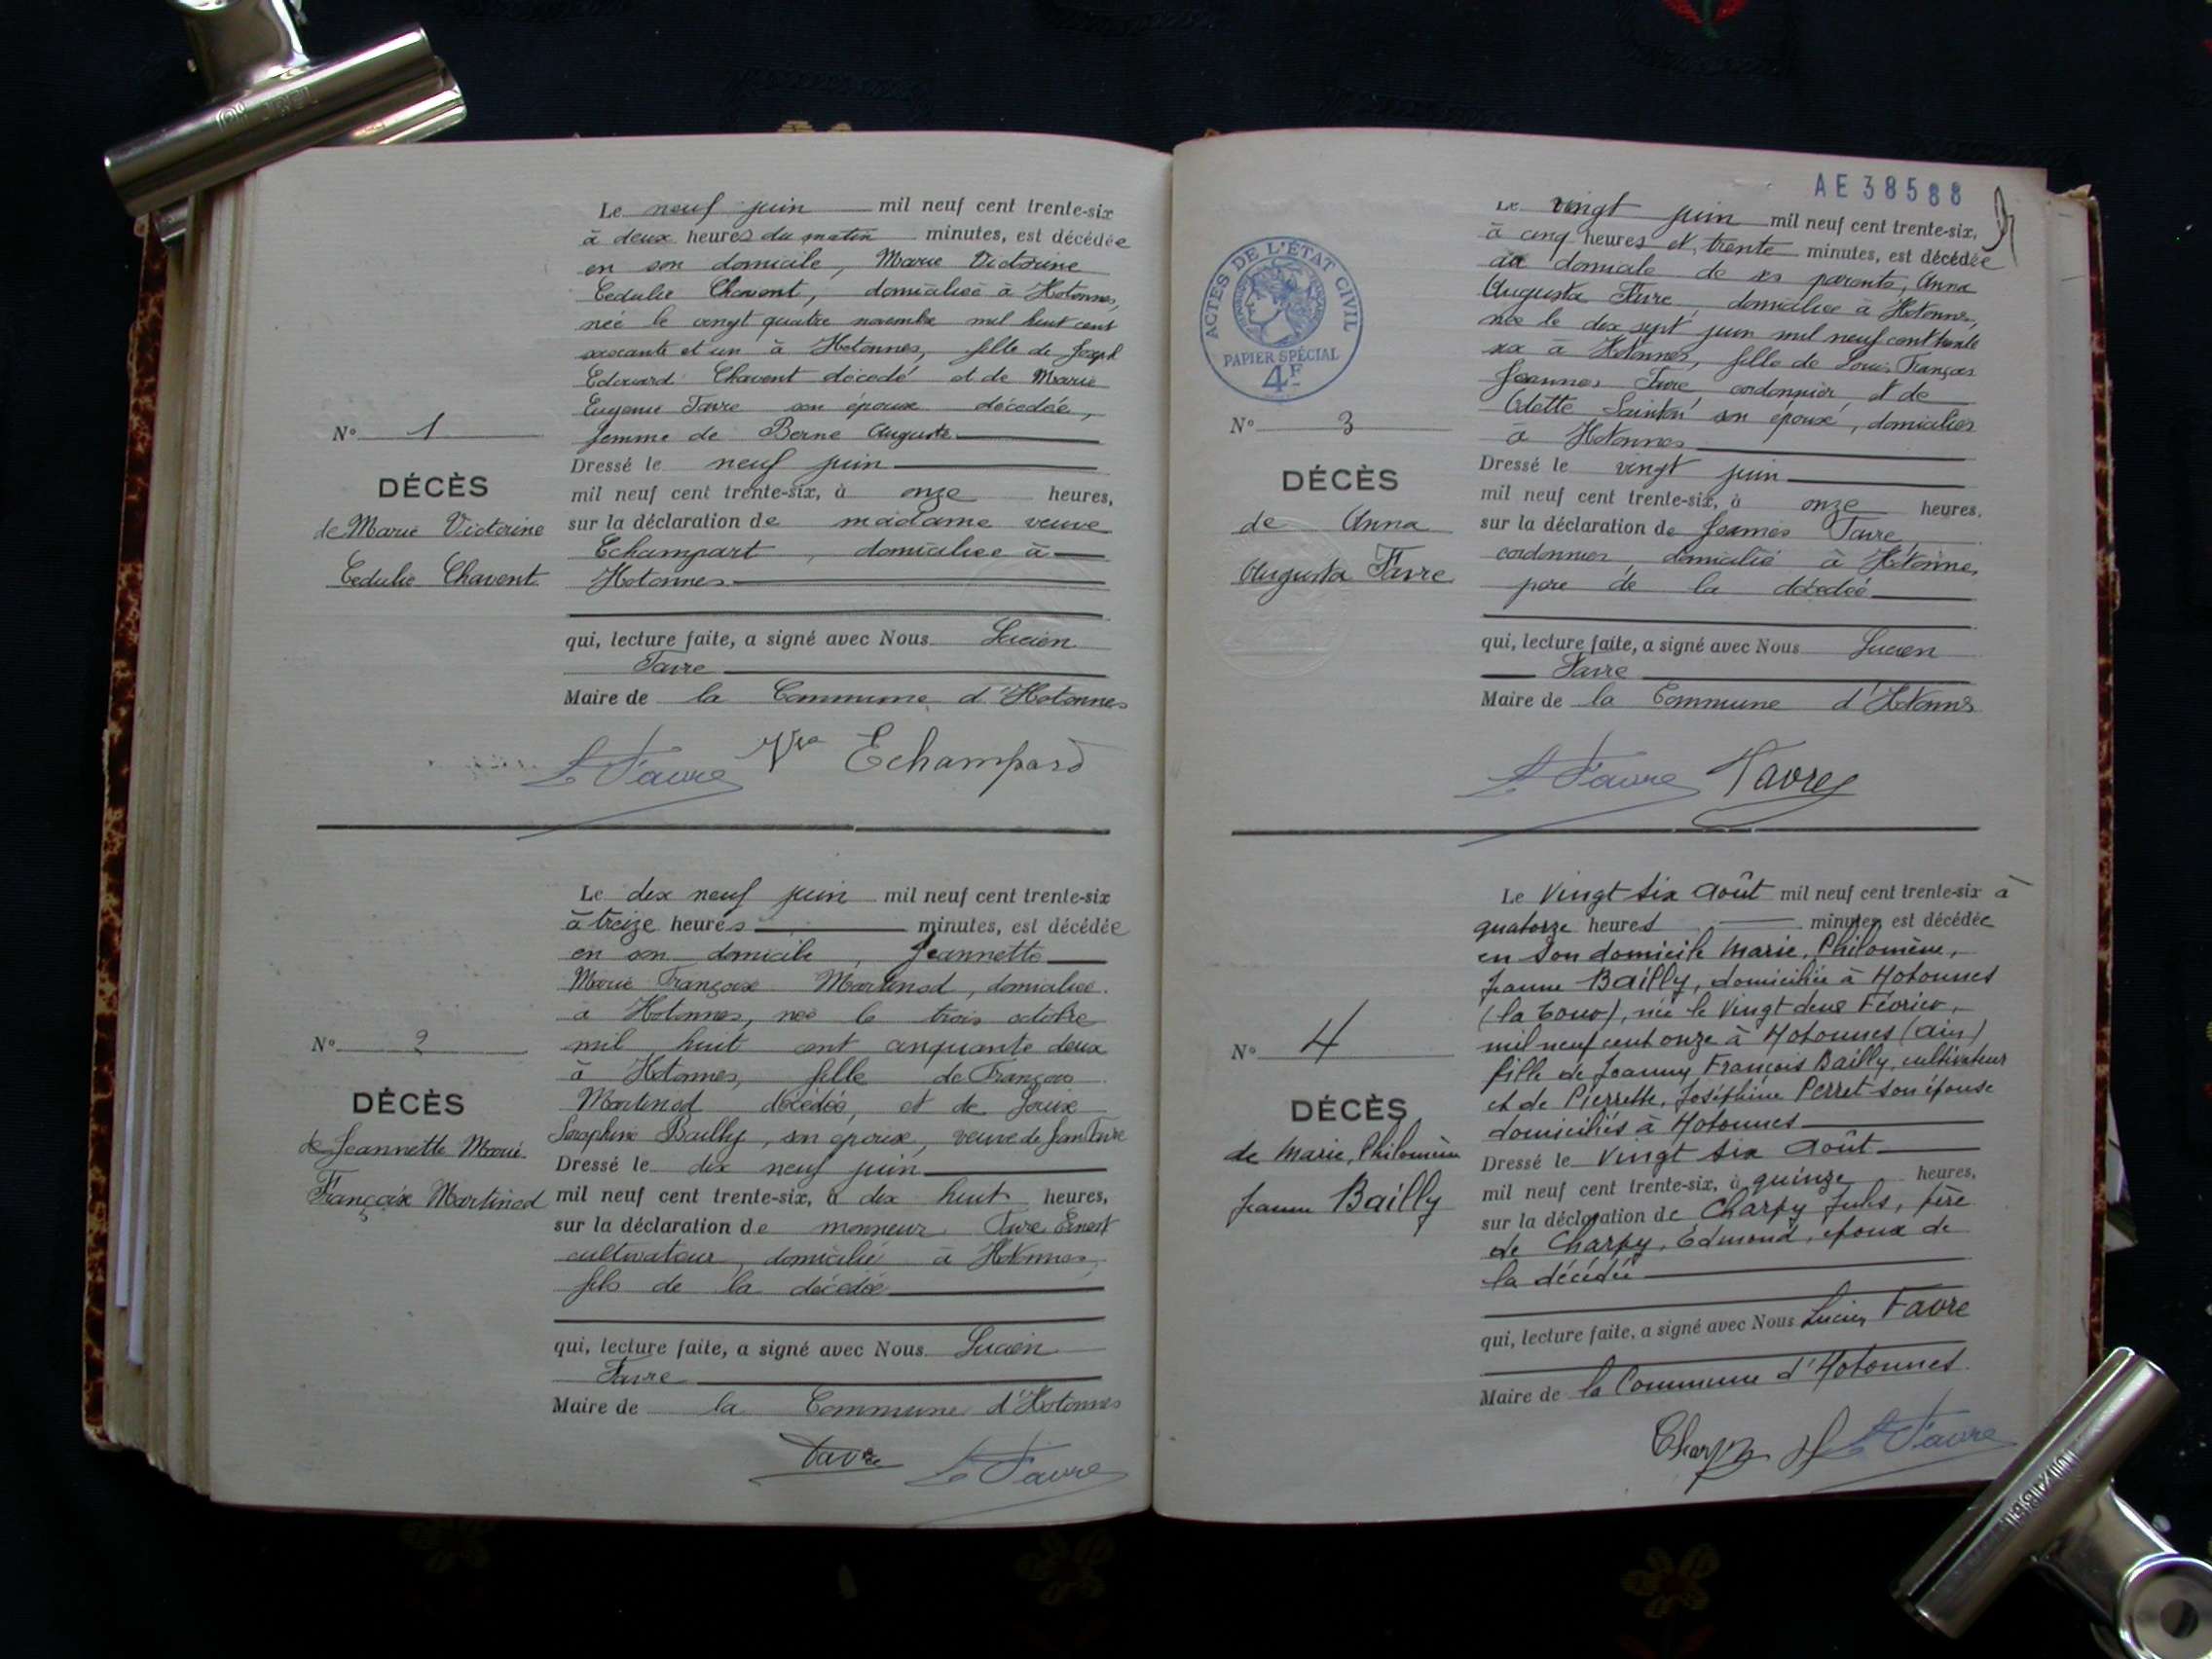 Le neuf juin mil neuf cent trente-six
à deux heures du matin minutes, est décédée
en son domicile, Marie Victorine
Cedulie Chavent, domiciliée à Hotonnes,
née le vingt quatre novembre mil huit cent
soixante et un à Hotonnes, fille de Joseph
Edouard Chavent décédé et de Marie
Eugenie Favre son épouse décédée,
femme de Berne Auguste
N° 1
DÉCÈS
de Marie Victorine
Cedulie Chavent
Dressé le neuf juin
mil neuf cent trente-six, à onze heures,
sur la déclaration de madame veuve
Echampart, domiciliée à
Hotonnes
qui, lecture faite, a signé avec Nous Lucien
Favre
Maire de la Commune d'Hotonnes
L Favre Vve Echampard
Le dix neuf juin mil neuf cent trente-six
à treize heures minutes, est décédée
en son domicile, Jeannette
Marie Françoise Martinod, domiciliée
à Hotonnes, née le trois octobre
mil huit cent cinquante deux
à Hotonnes, fille de François
Martinod décédé, et de Louise
Séraphine Bailly, son épouse, veuve de Jean Favre
N° 2
DÉCÈS
de Jeannette Marie
Françoise Martinod
Dressé le dix neuf juin
mil neuf cent trente-six, à dix huit heures,
sur la déclaration de monsieur Favre Ernest
cultivateur, domicilié à Hotonnes,
fils de la décédée
qui, lecture faite, a signé avec Nous Lucien
Favre
Maire de la Commune d'Hotonnes
Favre L Favre
AE 38588
ACTES DE L'ÉTAT CIVIL
PAPIER SPÉCIAL
4F
Le vingt juin mil neuf cent trente-six,
à cinq heures et trente minutes, est décédée
au domicile de ses parents, Anna
Augusta Favre, domiciliée à Hotonnes,
née le dix sept juin mil neuf cent trente
six à Hotonnes, fille de Louis François
Joannes Favre, cordonnier et de
Odette son épouse, domiciliés
à Hotonnes
N° 3
DÉCÈS
de Anna
Augusta Favre
Dressé le vingt juin
mil neuf cent trente-six, à onze heures,
sur la déclaration de Joannes Favre
cordonnier, domicilié à Hotonnes,
père de la décédée
qui, lecture faite, a signé avec Nous Lucien
Favre
Maire de la Commune d'Hotonnes
L Favre Favre
Le Vingt six Août mil neuf cent trente-six à
quatorze heures minutes, est décédée
en son domicile Marie, Philomène,
Jeanne Bailly, domiciliée à Hotonnes
(la Couo), née le Vingt deux Février,
mil neuf cent onze à Hotonnes (Ain)
fille de Joanny François Bailly, cultivateur
et de Pierrette, Joséphine Perret son épouse
domiciliés à Hotonnes
N° 4
DÉCÈS
de Marie, Philomène
Jeanne Bailly
Dressé le Vingt six Août
mil neuf cent trente-six, à quinze heures,
sur la déclaration de Charpy Jules, père
de Charpy, Edmond, époux de
la décédée
qui, lecture faite, a signé avec Nous Lucien Favre
Maire de la Commune d'Hotonnes
Charpy J L Favre